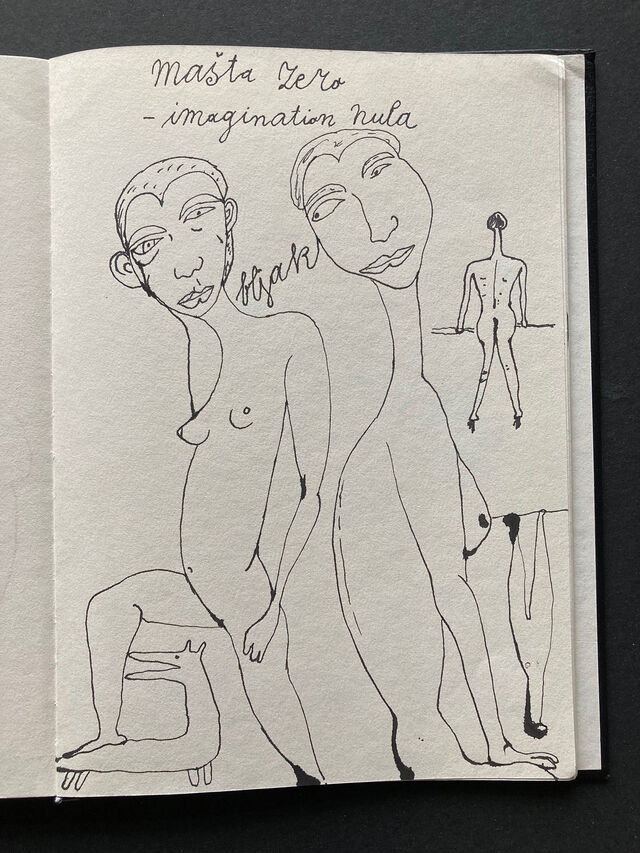 mašta zero
- imagination nula
bljak